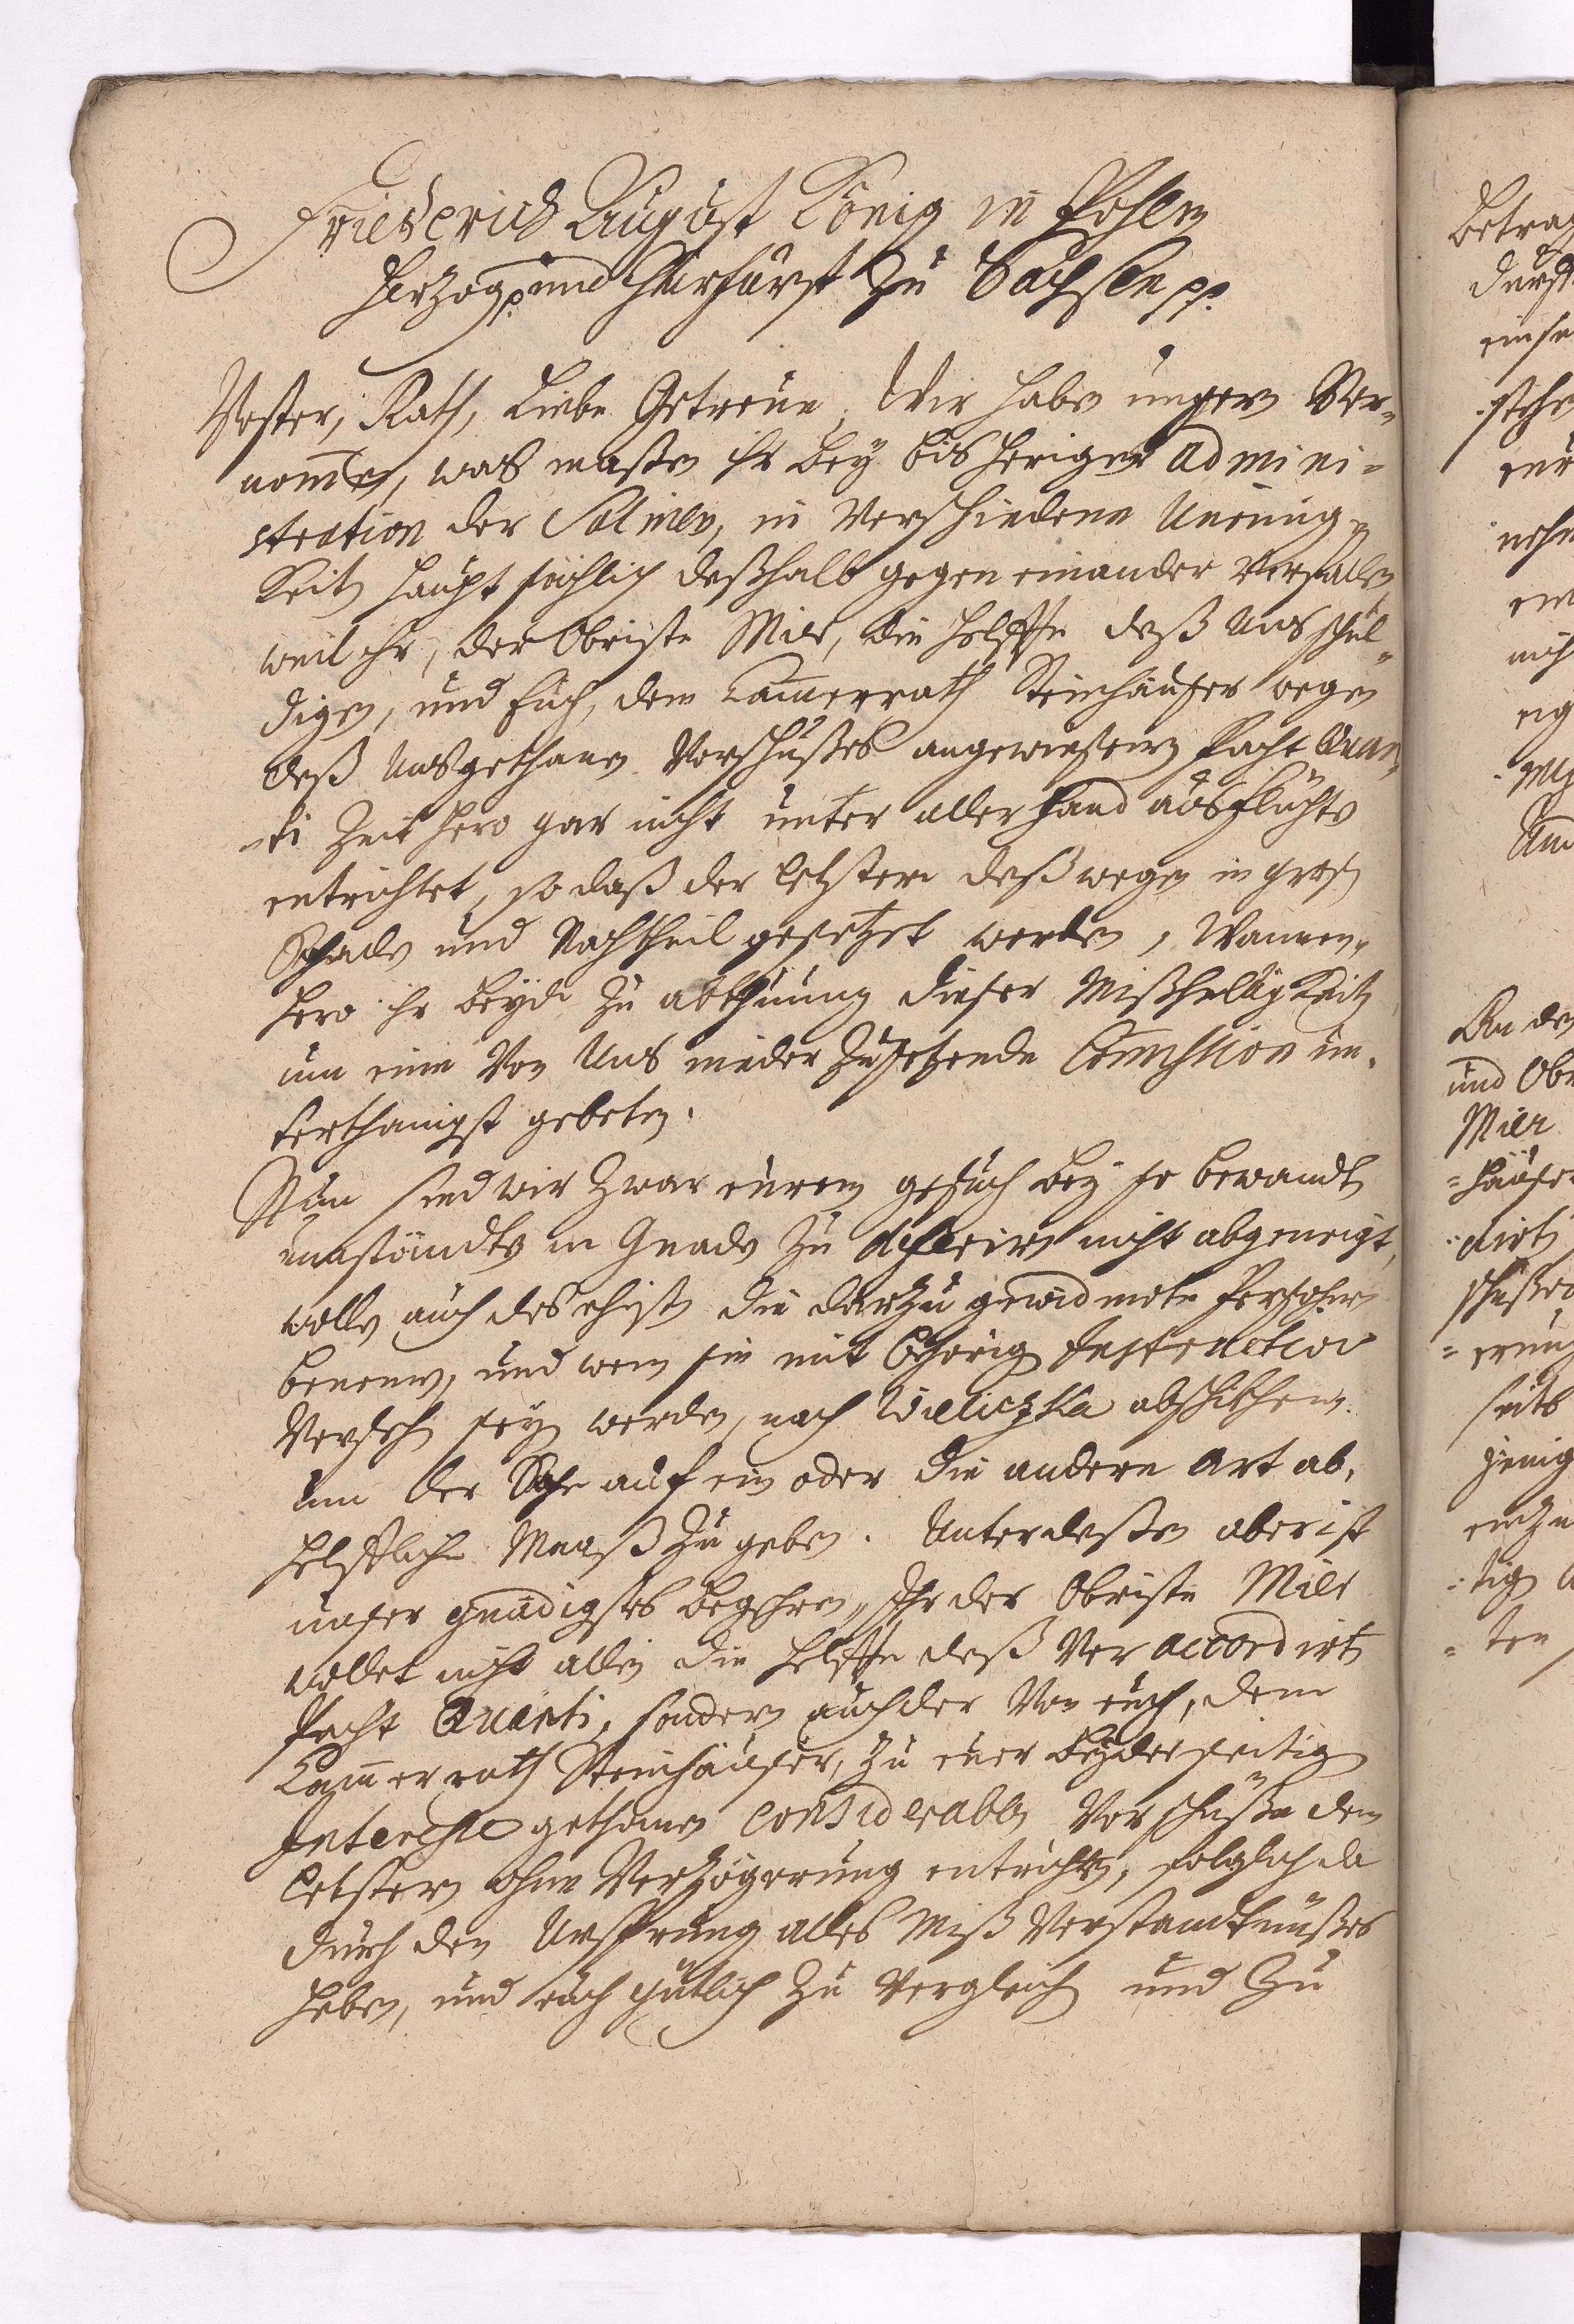 Friederich August König in Pohlen
Hertzog p. und Churfürst zu Sachsen pp.
Vester, Rath, Liebe Getreue, Wir haben ungern Ver-
nommen, was maßen ihr bey bisheriger Admini-
stration der Salinen, in verschiedene Uneinig-
keiten hauptsächlich deßhalb gegen einander verfallen,
weil ihr, der Obriste Mier, die Helffte deß Uns schul-
digen, und Euch, dem Cammerrath Steinhäuser wegen
deß Uns gethanen Vorschußes angewießenen Pacht Quan-
-ti Zeithero gar nicht unter allerhand ausflüchten
entrichtet, so daß der letztere deßwegen in großen
Schaden und Nachtheil gesetzet worden, Wannen-
hero ihr beyde zu abthuung dieser Mißhelligkeiten
um eine Von Uns nieder zusetzende Commission un-
terthänigst gebeten.
Nun sind wir zwar eurem gesuch bey so bewandten
umständen in Gnaden zu deferiren nicht abgeneigt,
wollen auch des ehisten die darzu gewidmete Persohnen
benennen, und wenn sie mit behörigen Instruction
Versehen seyn werden, nach Wieliczka abschicken
um der Sache auf ein oder die andere Art ab-
helffliche Maaß zu geben. Unterdeßen aber ist
unser gnädigstes Begehren, Ihr der Obriste Mier
wollet nicht allein die Helffte deß Veraccordirten
Pacht Quanti, sondern auch der Von euch, dem
Cammerrath Steinhäuser, zu euer beyderseitigen
Interesse gethanen considerablen Vorschüße dem
letztern ohne Verzögerung entrichten, folglich da
durch den Ursprung alles Miß Verstandtnüßes
heben, und euch gütlich zu Vergleichen und zu
An den
und Obr
Mier